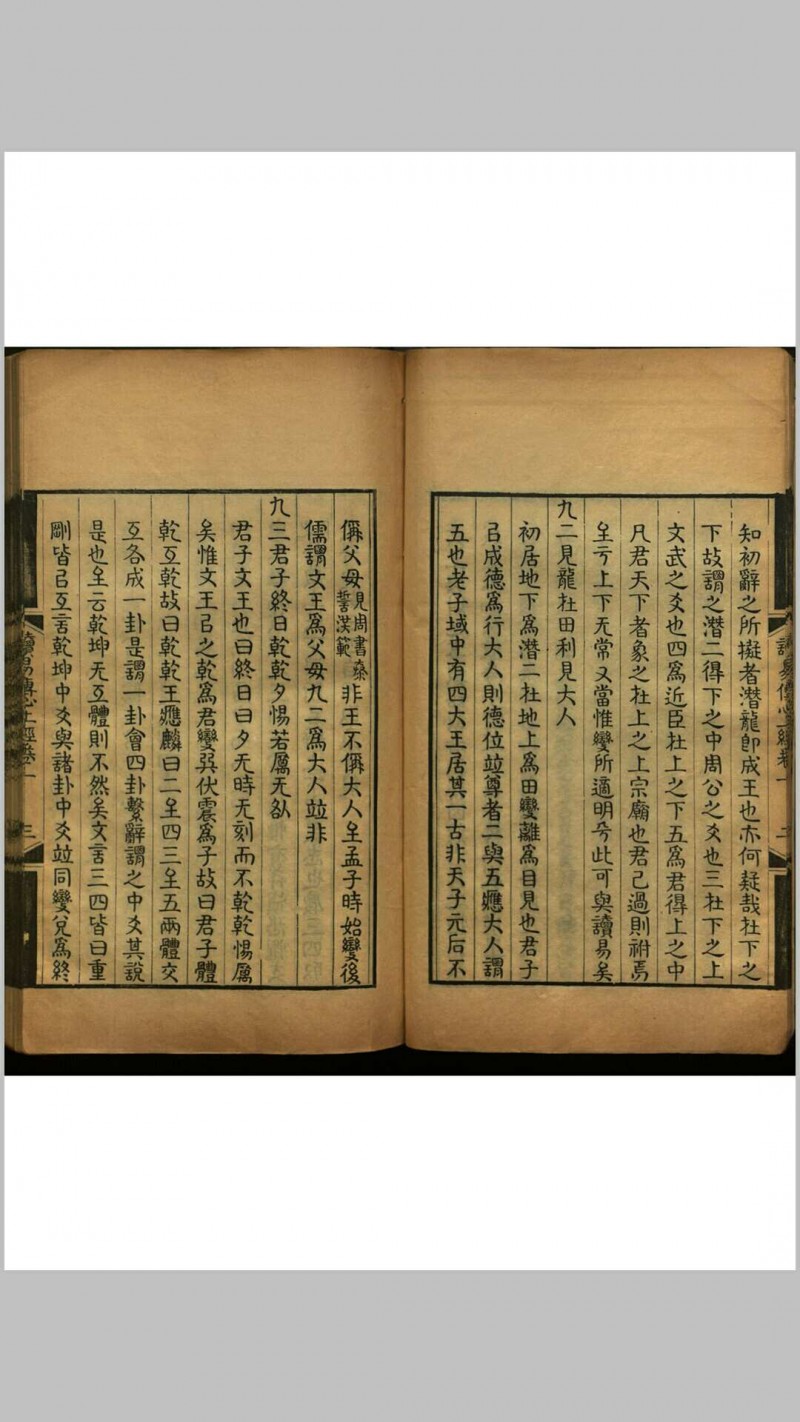 知初辭之所擬者潛龍卽成王也亦何疑哉杜下之
下故謂之潛二得下之中周公之爻也三杜下之上
文武之爻也四爲近臣杜上之下五爲君得上之中
凡君天下者象之杜上之上宗廟也君已過則祔焉
至亏上下无常又當惟變所適明兮此可與讀易矣
九二見龍杜田利見大人
初居地下爲潛二杜地上爲田變離爲目見也君子
㠯成德爲行大人則德位竝尊者二與五應大人謂
五也老子域中有四大王居其一古非天子元后不
偁父母見周書泰誓洪範非王不偁大人至孟子時始變後
儒謂文王爲父母九二爲大人竝非
九三君子終日乾乾夕惕若厲无咎
君子文王也曰終日曰夕无時无刻而不乾乾惕厲
矣惟文王㠯之乾爲君變巽伏震爲子故曰君子體
乾互乾故曰乾乾王應麟曰二至四三至五兩體交
互各成一卦是謂一卦會四卦繫辭謂之中爻其說
是也至云乾坤无互體則不然矣文言三四皆曰重
剛皆㠯互言乾坤中爻與諸卦中爻竝同變兌爲終
讀易傳心上經卷一
三